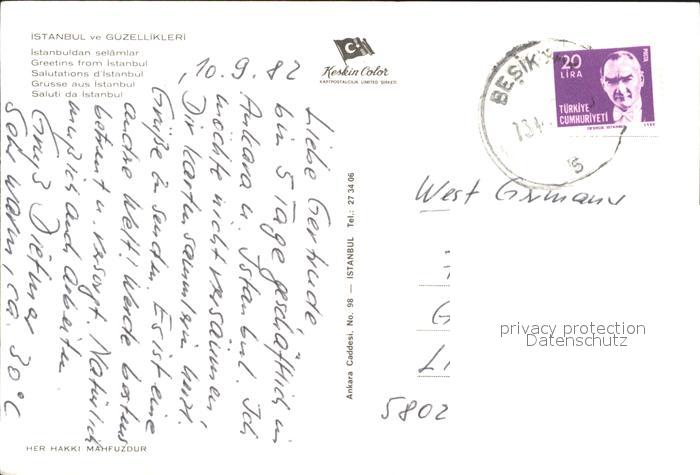 İSTANBUL ve GÜZELLİKLERİ
İstanbuldan selâmlar
Greetins from İstanbul
Salutations d'İstanbul
Grüsse aus İstanbul
Saluti da İstanbul
Keskin Color
KARTPOSTALCILIK LIMITED ŞİRKETİ
10.9.82
Liebe Gertrude
bin 5 Tage geschäftlich in
Ankara u. Istanbul. Ich
möchte nicht versäumen,
Dir Kartensammlerin herzl.
Grüße zu senden. Es ist eine
andre Welt! Werde bestens
betreut u. versorgt. Natürlich
muß ich auch arbeiten
Gruß Dietmar
Sehr warm, ca. 30°C
Ankara Caddesi, No. 98 — İSTANBUL Tel.: 27 34 06
HER HAKKI MAHFUZDUR
BEŞİK
20
LİRA
POSTA
TÜRKİYE
CUMHURİYETİ
West Germany
privacy protection
Datenschutz
5802